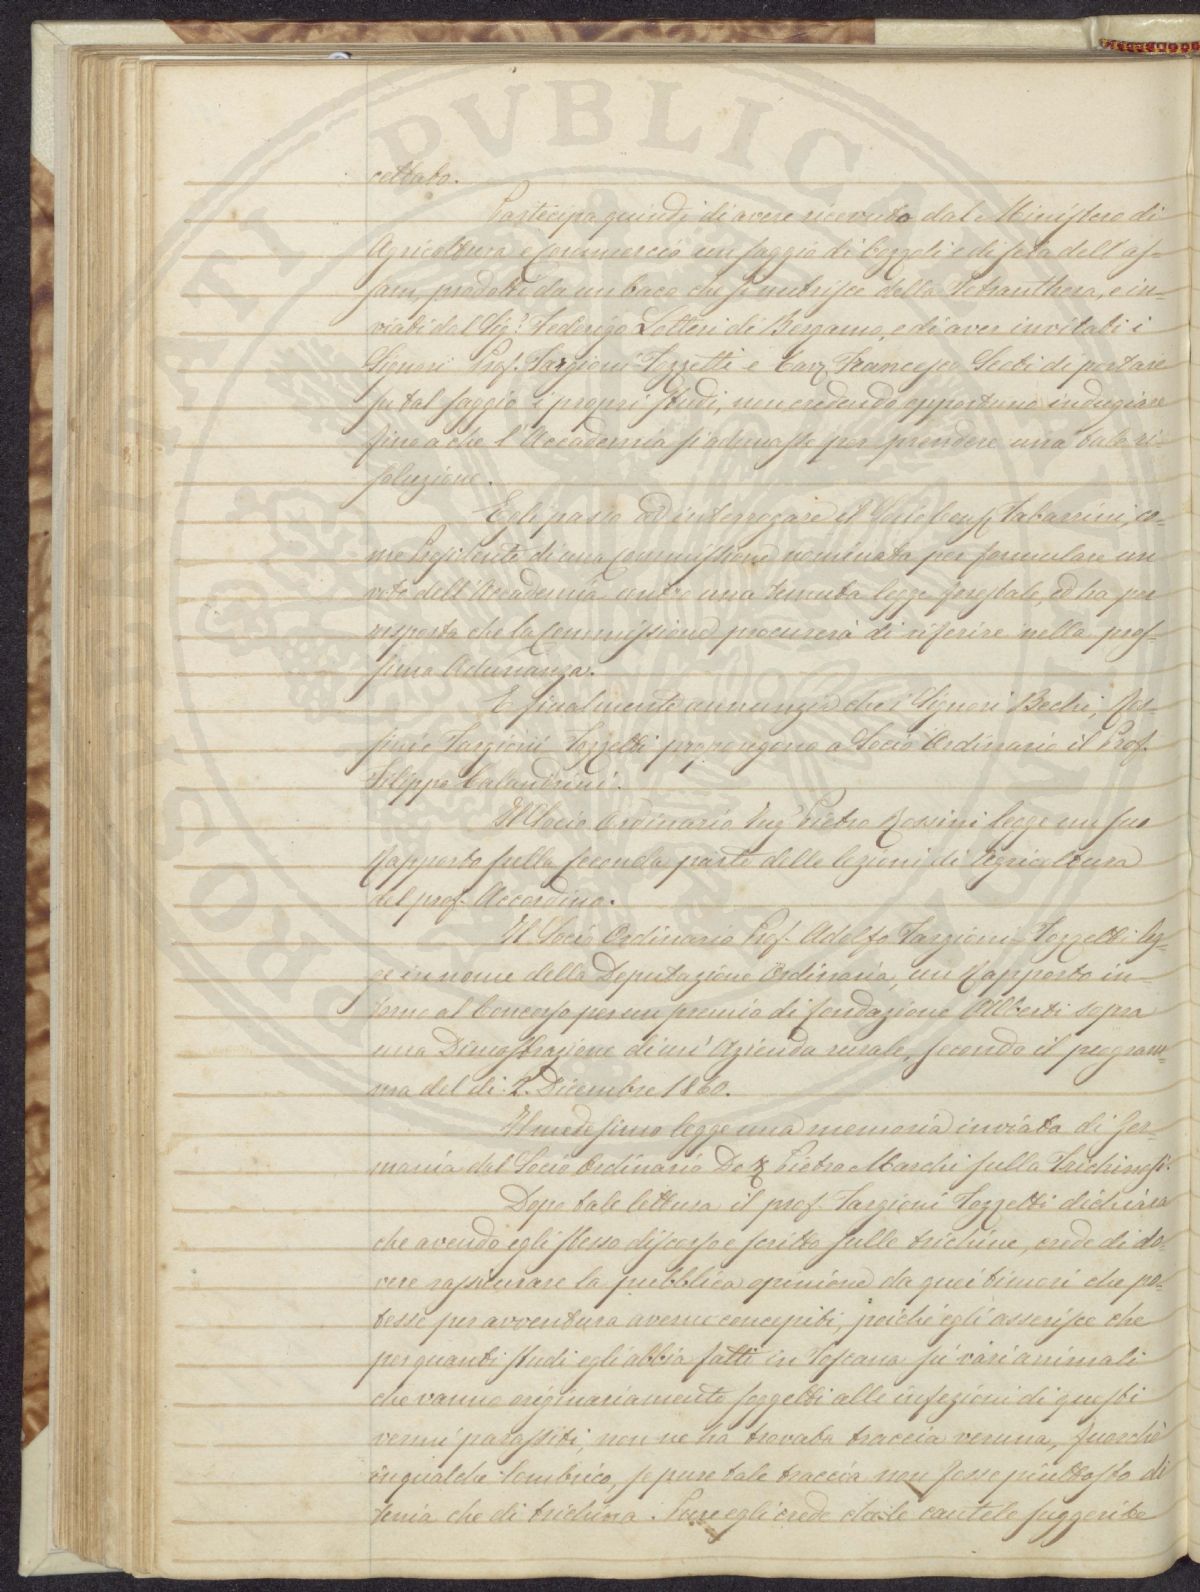 cettato.
Partecipa quindi di avere ricevuto dal Ministero di
Agricoltura e Commercio un saggio di bozzoli e di seta dell'As-
sam, prodotti da un baco che si nutrisce della Tetranthera, e in-
viati dal Sig.r Federigo Lotteri di Bergamo, e di aver invitati i
Signori Prof. Targioni Tozzetti e Cav. Francesco Scoti di portare
su tal saggio i propri studi, non credendo opportuno indugiare
fino a che l'Accademia si adunasse per prendere una tale ri-
soluzione.
Egli passa ad interrogare il Socio Tabarrini, co-
me Presidente di una Commissione nominata per formulare un
voto dell'Accademia contro una temuta legge forestale, ed ha per
risposta che la Commissione procurerà di riferire nella pros-
sima Adunanza.
E finalmente annunzia che i Signori Bechi, Ros-
sini e Targioni Tozzetti propongono a Socio Ordinario il Prof.
Filippo Calandrini.
Il Socio Ordinario Ing.r Pietro Rossini legge un suo
Rapporto sulla seconda parte delle lezioni di Agricoltura
del prof. Accordino.
Il Socio Ordinario Prof. Adolfo Targioni-Tozzetti leg-
ge in nome della Deputazione Ordinaria, un Rapporto in-
torno al Concorso per un premio di fondazione Alberti sopra
una Dimostrazione di un'Azienda rurale, secondo il program-
ma del dì 2. Dicembre 1860.
Il medesimo legge una memoria inviata di Ger-
mania dal Socio Ordinario Dott. Pietro Marchi sulla Trichinosi.
Dopo tale lettura il prof. Targioni Tozzetti dichiara
che avendo egli stesso discorso e scritto sulle trichine, crede di do-
vere rassicurare la pubblica opinione da quei timori che po-
tesse per avventura averne concepiti, poichè egli asserisce che
per quanti studi egli abbia fatti in Toscana su vari animali
che vanno originariamente soggetti alle infezioni di questi
vermi parassiti, non ne ha trovata traccia veruna, fuorchè
in qualche lombrico, se pure tale traccia non fosse piuttosto di
tenia che di trichina. Pure egli crede che le cautele suggerite
PUBLICAE